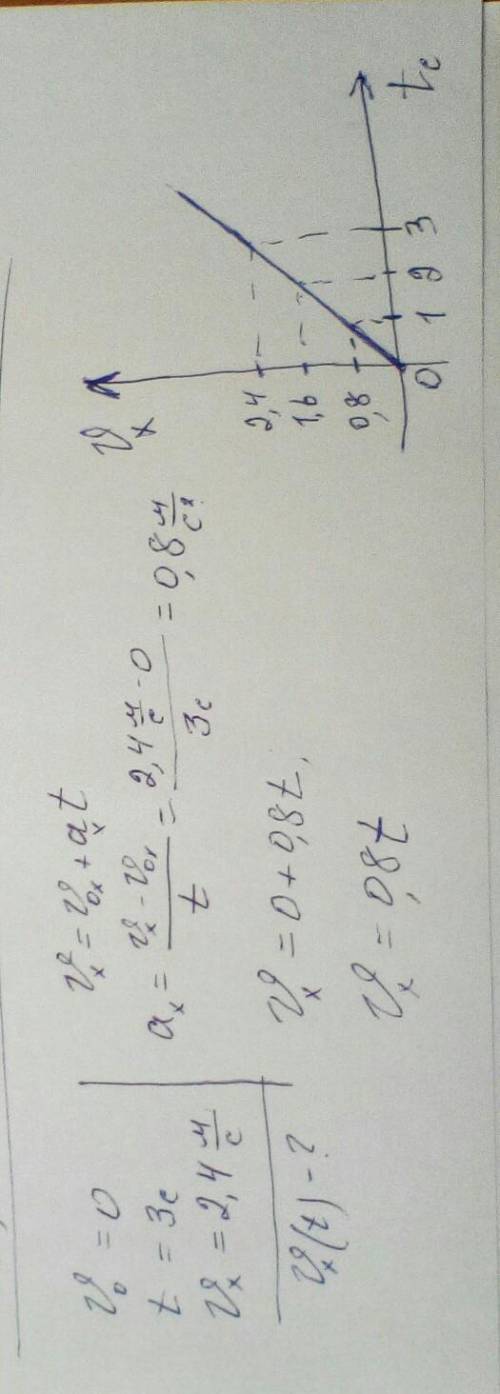 v₀ = 0
t = 3с
vₓ = 2,4 м/с
vₓ(t) - ?
vₓ = v₀ₓ + aₓt
aₓ = (vₓ - v₀ₓ)/t = (2,4 м/с - 0)/3с = 0,8 м/с².
vₓ = 0 + 0,8t,
vₓ = 0,8t
vₓ
2,4
1,6
0,8
0 1 2 3 t с